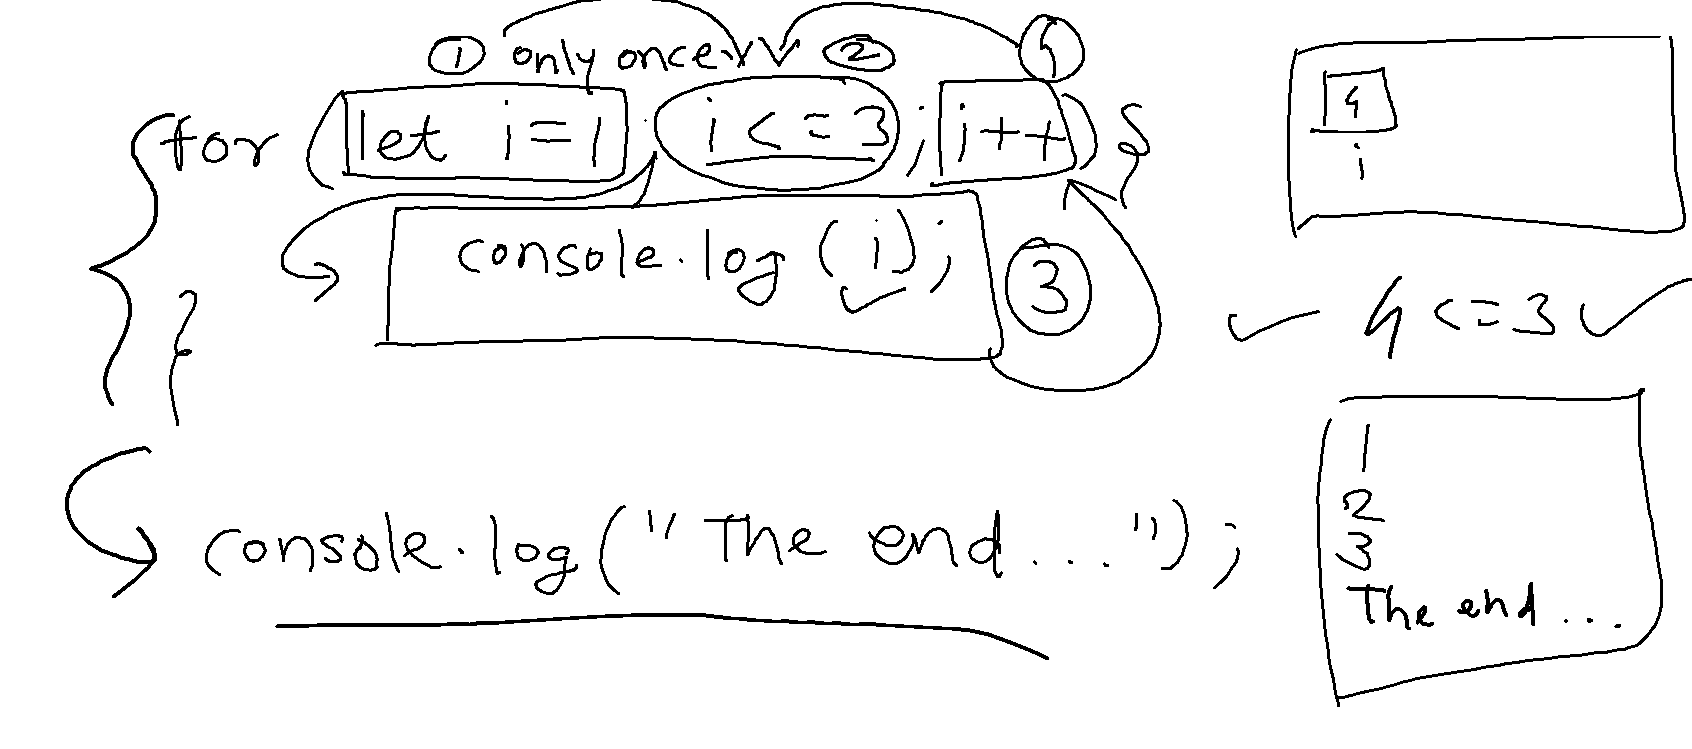 ① only once ② 4
for (let i=1; i<=3; i++) {
console.log(i); ③
}
console.log("The end...");
4
i
4<=3
1
2
3
The end...